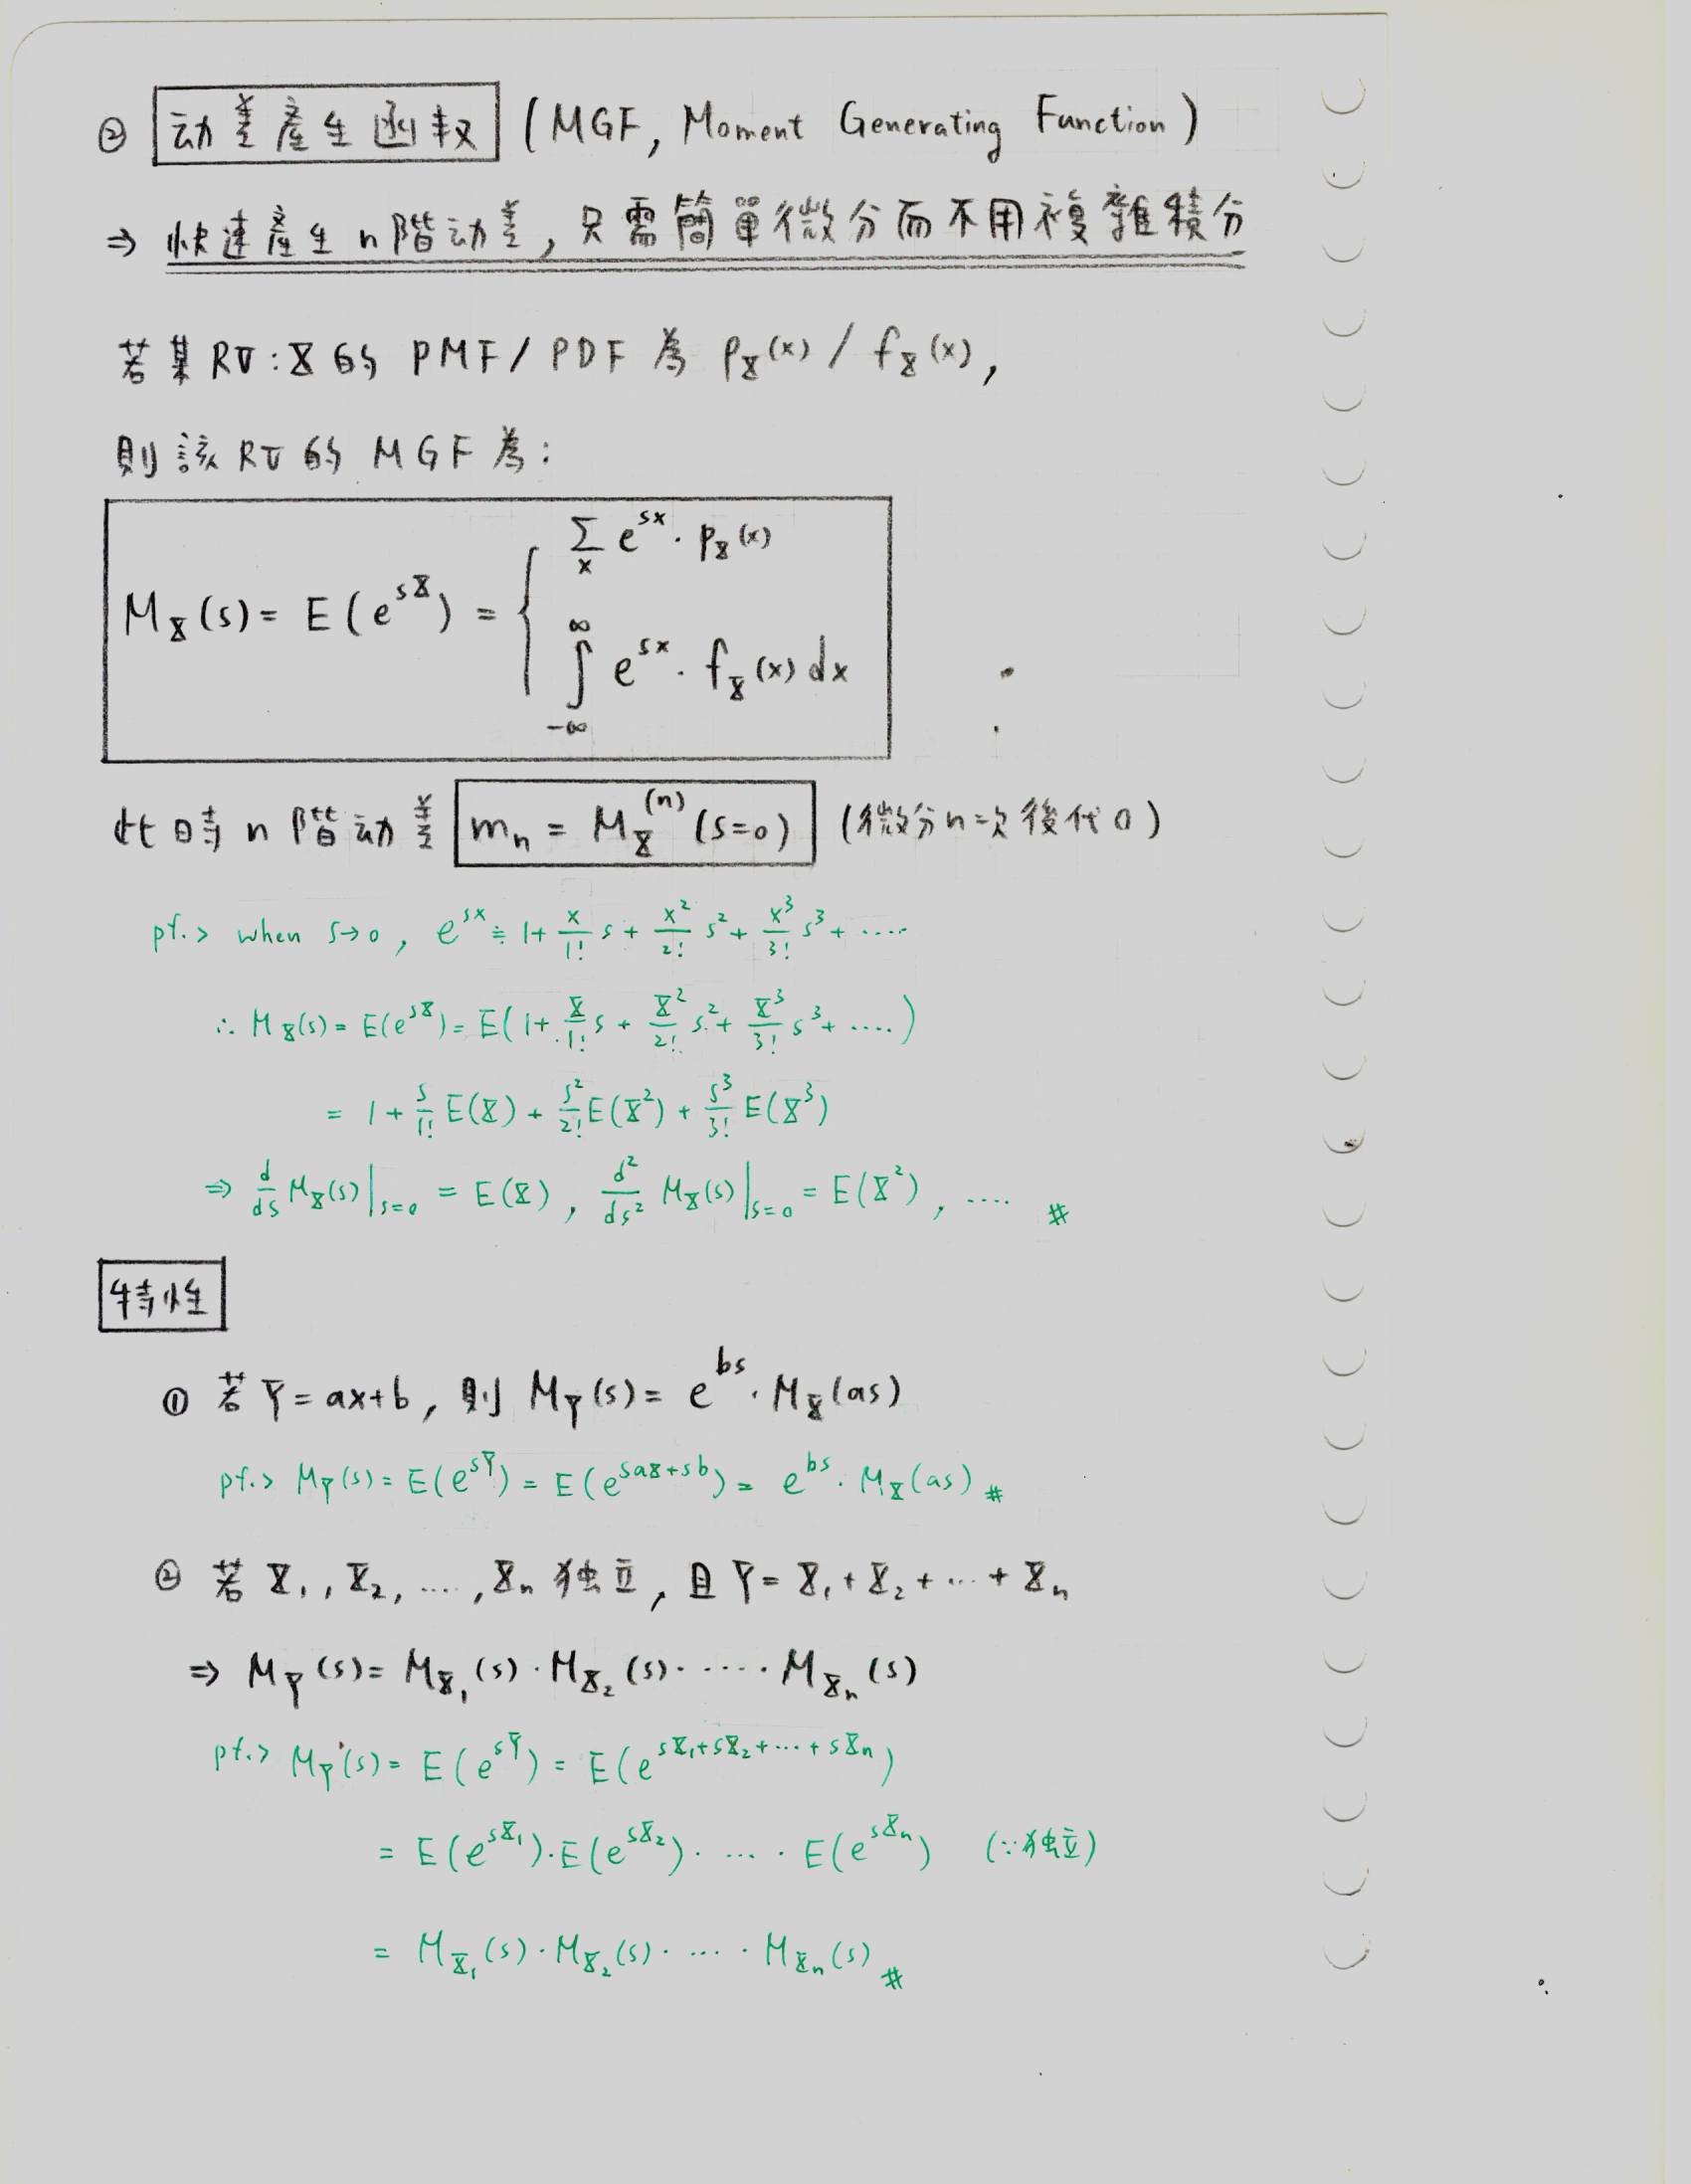 ② 动差產生函数 (MGF, Moment Generating Function)
⇒ 快速產生 n階动差, 只需簡單微分而不用複雜積分
若某RV: X的 PMF / PDF 為 p_X(x) / f_X(x),
則該RV的 MGF 為:
M_X(s) = E(e^{sX}) = { Σ_x e^{sx} · p_X(x)
∫_{-∞}^{∞} e^{sx} · f_X(x) dx
此時 n 階动差 m_n = M_X^{(n)}(s=0) (微分n次後代0)
pf.> when s→0, e^{sx} ≒ 1 + x/1! s + x^2/2! s^2 + x^3/3! s^3 + ....
∴ M_X(s) = E(e^{sX}) = E(1 + X/1! s + X^2/2! s^2 + X^3/3! s^3 + ....)
= 1 + s/1! E(X) + s^2/2! E(X^2) + s^3/3! E(X^3)
⇒ d/ds M_X(s)|_{s=0} = E(X), d^2/ds^2 M_X(s)|_{s=0} = E(X^2), .... #
特性
① 若 Y = ax+b, 則 M_Y(s) = e^{bs} · M_X(as)
pf.> M_Y(s) = E(e^{sY}) = E(e^{saX+sb}) = e^{bs} · M_X(as) #
② 若 X_1, X_2, ...., X_n 独立, 且 Y = X_1 + X_2 + ... + X_n
⇒ M_Y(s) = M_{X_1}(s) · M_{X_2}(s) · ..... · M_{X_n}(s)
pf.> M_Y(s) = E(e^{sY}) = E(e^{sX_1+sX_2+...+sX_n})
= E(e^{sX_1}) · E(e^{sX_2}) · .... · E(e^{sX_n}) (∵独立)
= M_{X_1}(s) · M_{X_2}(s) · .... · M_{X_n}(s) #